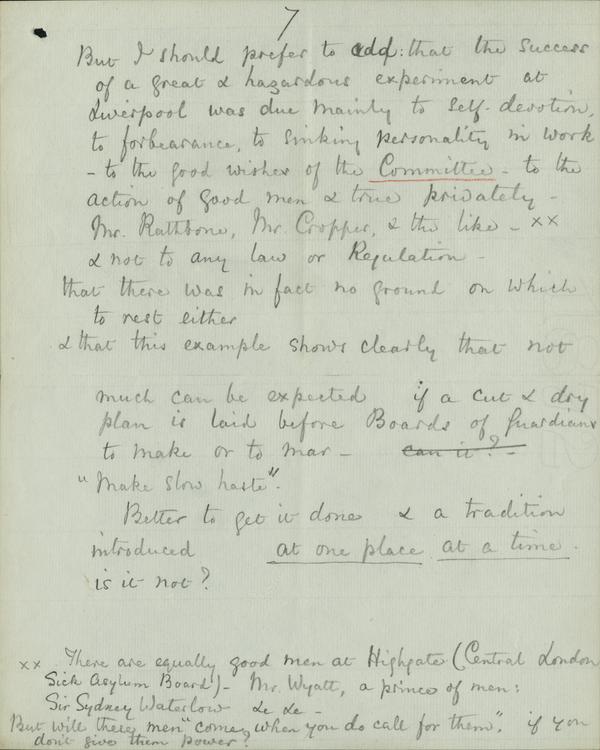 7
But I should prefer to add: that the success
of a great & hazardous experiment at
Liverpool was due mainly to self-devotion,
to forbearance, to sinking personality in work
- to the good wishes of the Committee - to the
action of good men & true privately -
Mr. Rathbone, Mr. Cropper, & the like - xx
& not to any law or Regulation -
that there was in fact no ground on which
to rest either
& that this example shows clearly that not
much can be expected if a cut & dry
plan is laid before Boards of Guardians
to make or to mar - can it? -
"Make slow haste".
Better to get it done & a tradition
introduced at one place at a time.
is it not?
xx There are equally good men at Highgate (Central London
Sick Asylum Board) - Mr. Wyatt, a prince of men:
Sir Sydney Waterlow &c &c -
But will these men "come, when you do call for them", if you
don't give them power?